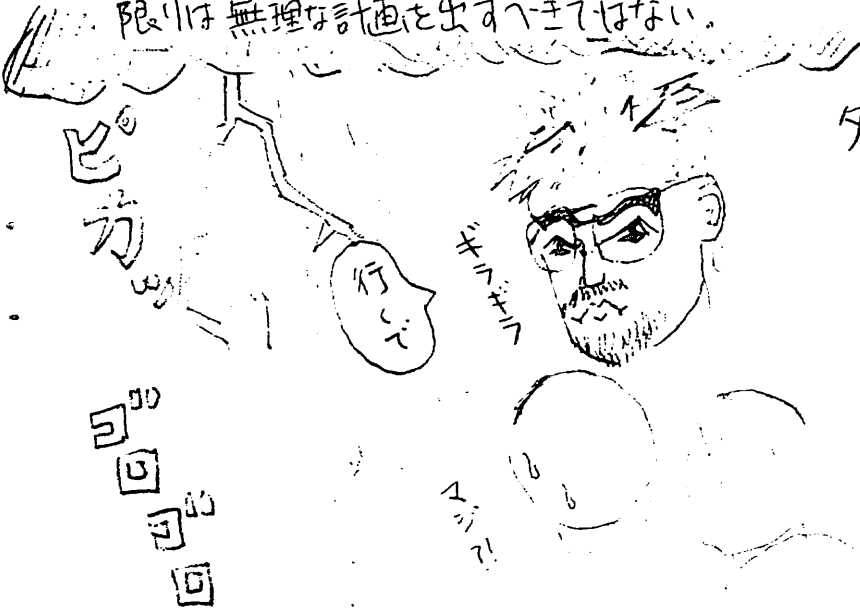 限りは無理な計画を出すべきではない。
ピカッ
行くで
ギラギラ
ゴロゴロ
マジ?!